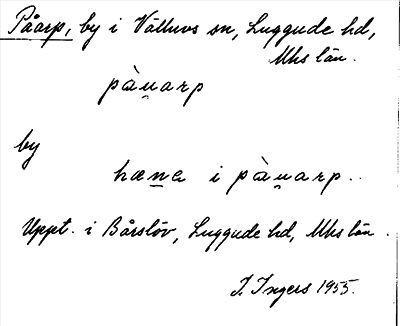 Påarp, by i Välluvs sn, Luggude hd,
Mhs län.
pàu̯arp
by
hæne i pàu̯arp.
Uppt. i Bårslöv, Luggude hd, Mhs län.
I. Ingers 1955.